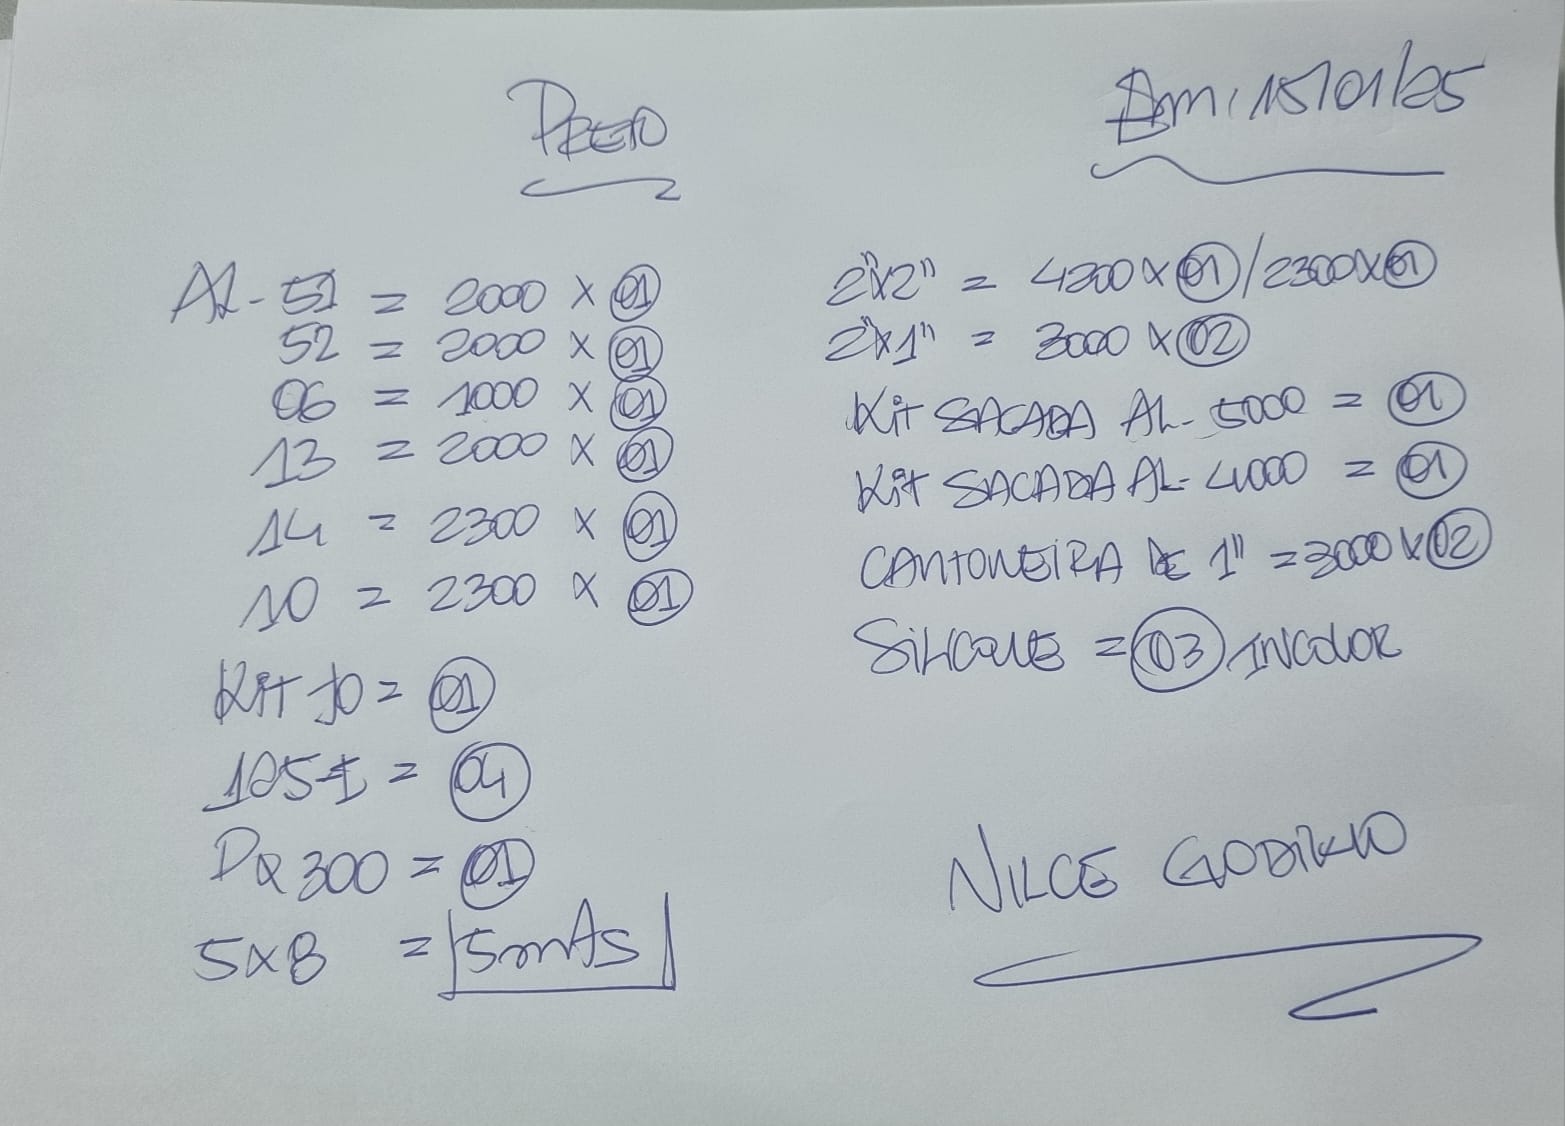 PRETO
Em: 15/01/25
AL-51 = 2000 x 01
52 = 2000 x 01
06 = 1000 x 01
13 = 2000 x 01
14 = 2300 x 01
10 = 2300 x 01
Kit 10 = 01
= 04
300 = 01
5x8 = 5mts
2"x2" = 4200 x 01 / 2300 x 01
2"x1" = 3000 x 02
Kit SACADA AL-5000 = 01
Kit SACADA AL-4000 = 01
CANTONEIRA DE 1" = 3000 x 02
SiLicone = 03 INCOLOR
NILCE